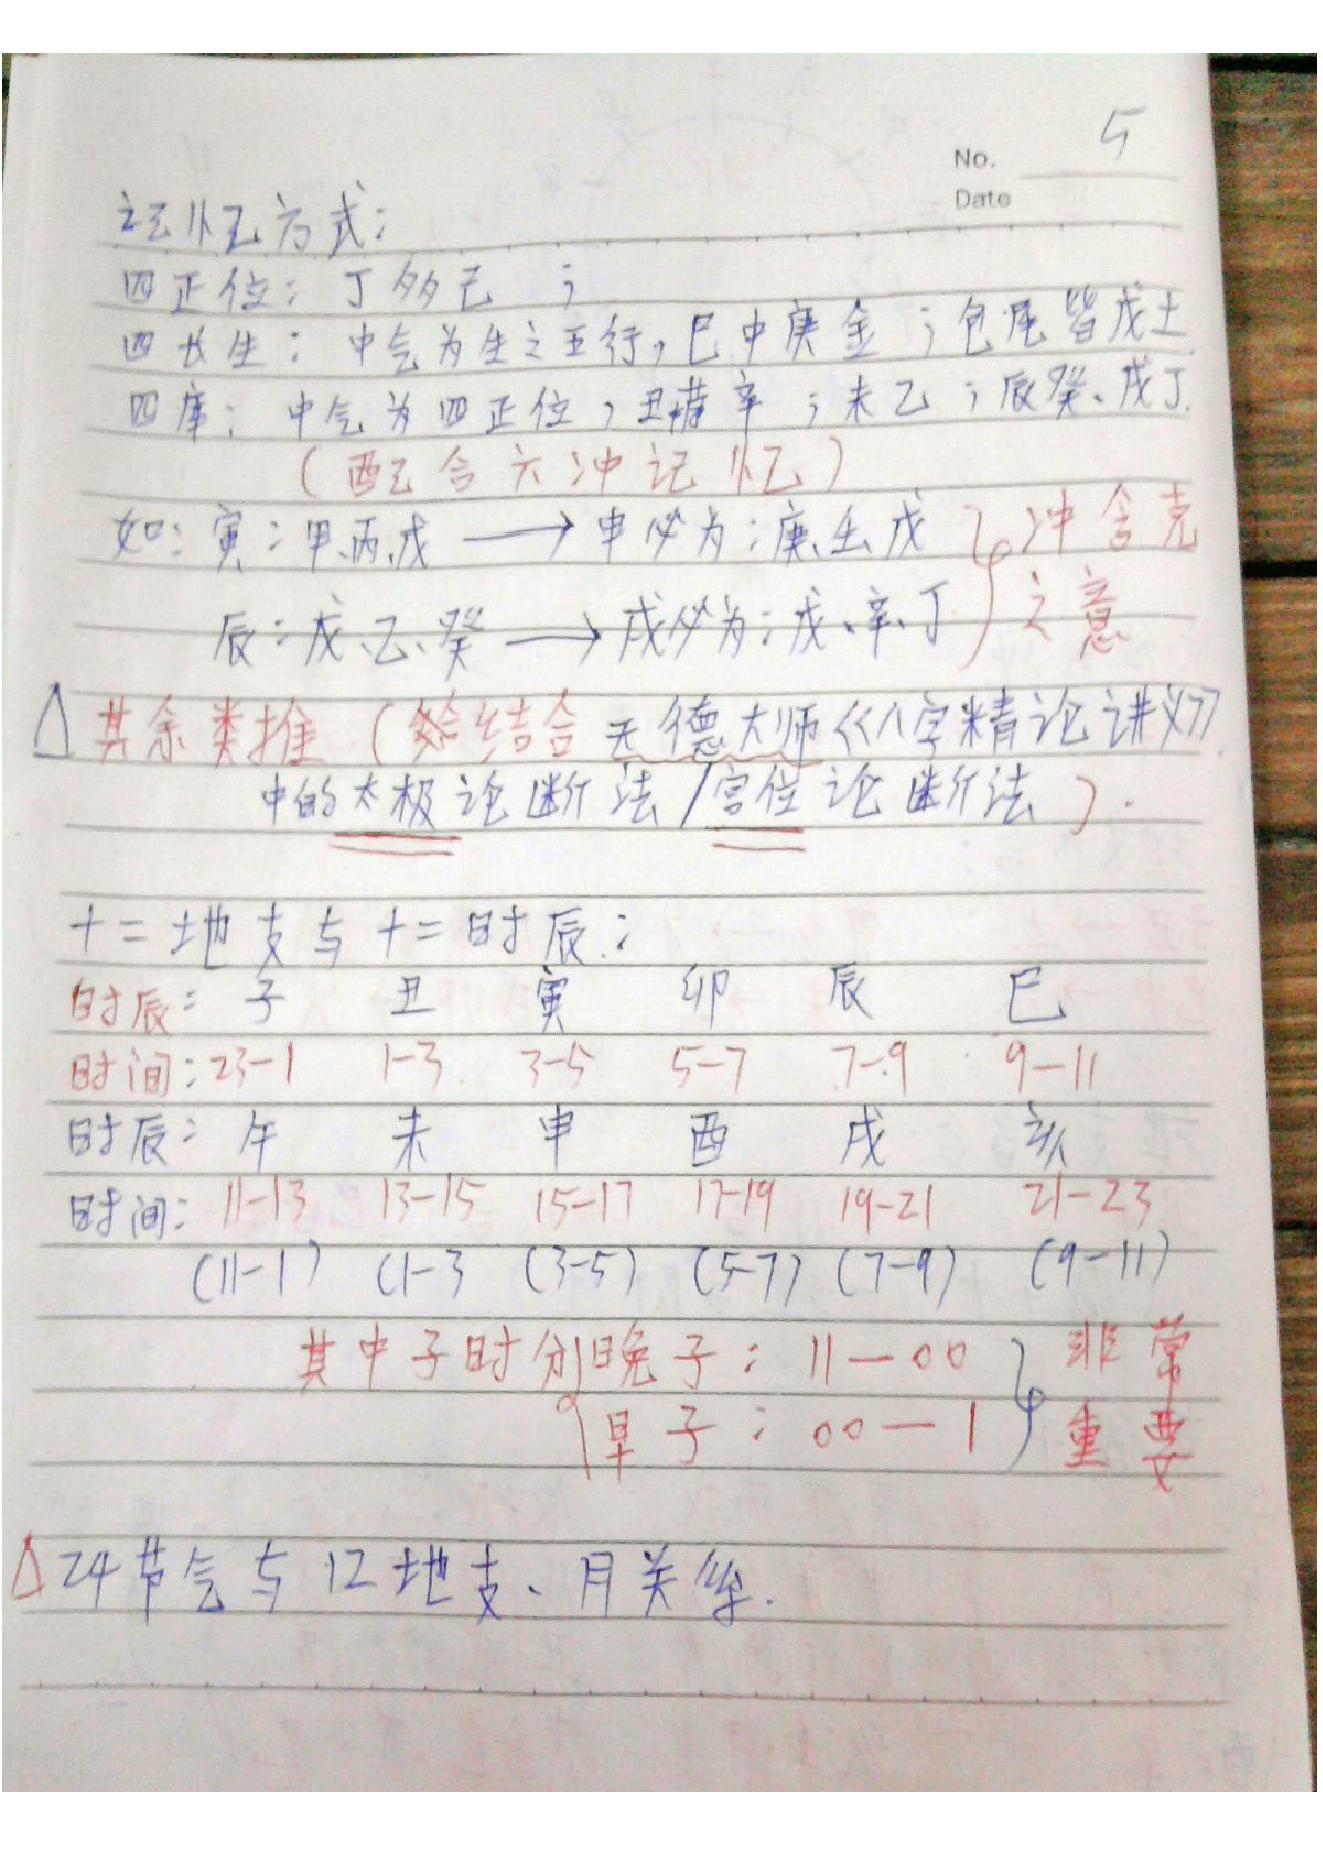 No. 5
Date
记忆方式：
四正位：丁多己；
四长生：中气为生之五行，巳中庚金；包尾皆戊土
四库：中气为四正位，丑藏辛；未乙；辰癸、戌丁.
（配合六冲记忆）
如：寅：甲、丙、戊 → 申必为：庚、壬、戊 } 冲含克
辰：戊、乙、癸 → 戌必为：戊、辛、丁 之意
△其余类推（结合 无德大师《八字精论讲义》
中的太极论断法/宫位论断法）.
十二地支与十二时辰：
时辰：子 丑 寅 卯 辰 巳
时间：23-1 1-3 3-5 5-7 7-9 9-11
时辰：午 未 申 酉 戌 亥
时间：11-13 13-15 15-17 17-19 19-21 21-23
(11-1) (1-3 (3-5) (5-7) (7-9) (9-11)
其中子时分{晚子：11—00 } 非常
早子：00—1 重要
△24节气与12地支、月关系.